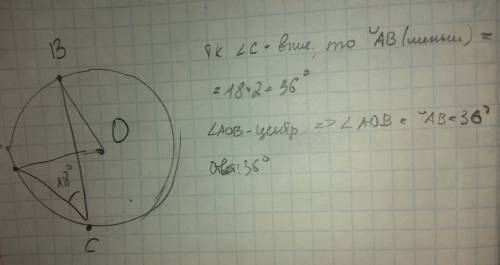 B
O
18°
C
Тк ∠C - впис, то ◡AB (меньш) =
= 18·2 = 36°
∠AOB - центр. => ∠AOB = ◡AB = 36°
Ответ: 36°